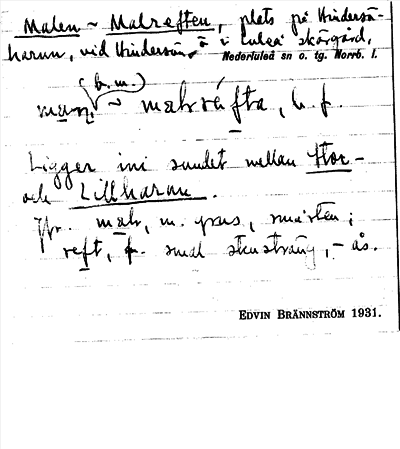 Malen ~ Malreften, plats på Hindersö-
harun, vid Hindersön, ö i Luleå skärgård,
Nederluleå sn o. tg. Norrb. l.
(b. m.)
~ malréfta, b. f.
Ligger ini sundet mellan Stor-
och Lillharun.
Jfr. mal, m. grus, småsten;
reft, f. smal stensträng, - ås.
EDVIN BRÄNNSTRÖM 1931.